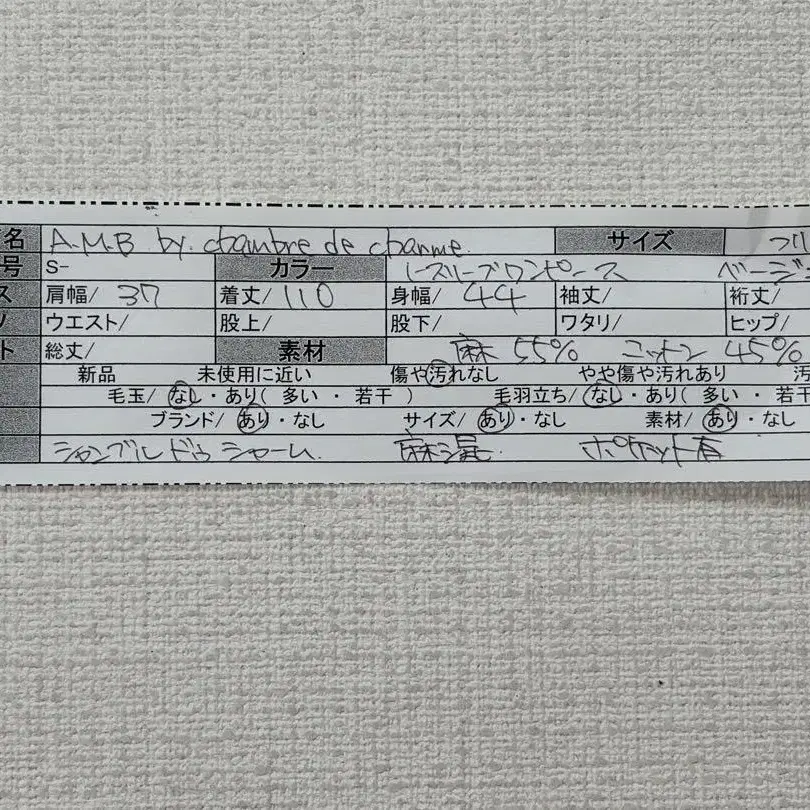 名 A.M.B by. chambre de charme. サイズ フリ
号 S- カラー ノースリーブワンピース ベージ
ス 肩幅/ 37 着丈/ 110 身幅/ 44 袖丈/ 裄丈/
ウエスト/ 股上/ 股下/ ワタリ/ ヒップ/
ト 総丈/ 素材 麻 55% コットン 45%
新品 未使用に近い 傷や汚れなし やや傷や汚れあり 汚
毛玉/ なし・あり( 多い ・ 若干 ) 毛羽立ち/ なし・あり( 多い ・ 若干
ブランド/ あり・なし サイズ/ あり・なし 素材/ あり・なし
シャンブル ドゥ シャーム. 麻混. ポケット有